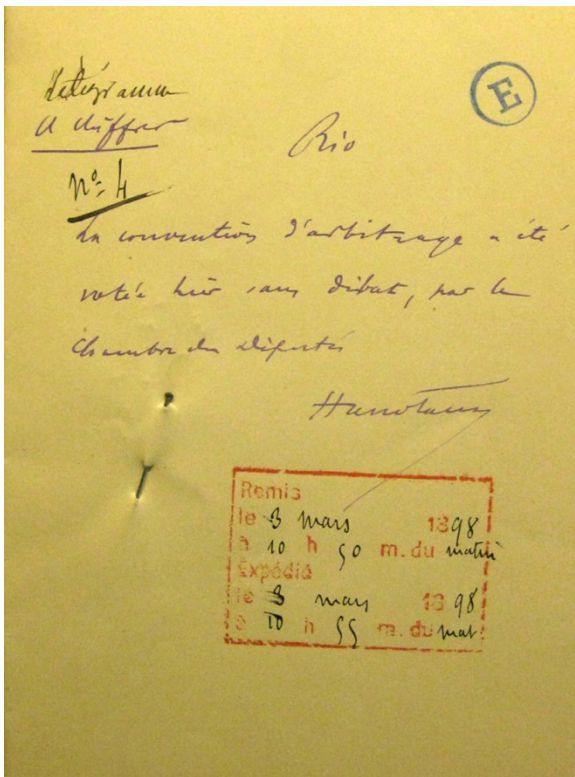 Télégramme
A chiffrer
E
Rio
Nº 4
La convention d'arbitrage a été
votée hier sans débat, par la
Chambre des Députés
Hanotaux
Remis
le 3 mars 1898
à 10 h 50 m. du matin
Expédié
le 3 mars 1898
à 10 h 55 m. du mat.